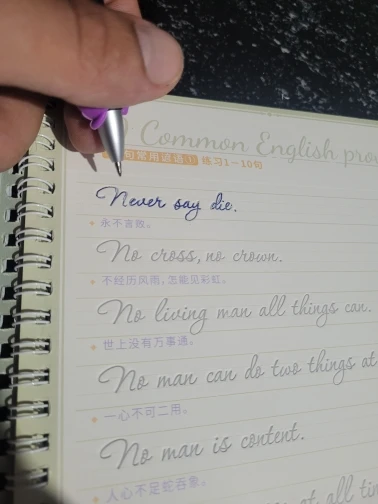 Common English prov
句常用谚语① 练习1~10句
Never say die.
永不言败。
No cross, no crown.
不经历风雨,怎能见彩虹。
No living man all things can.
世上没有万事通。
No man can do two things at
一心不可二用。
No man is content.
人心不足蛇吞象。
at all tim